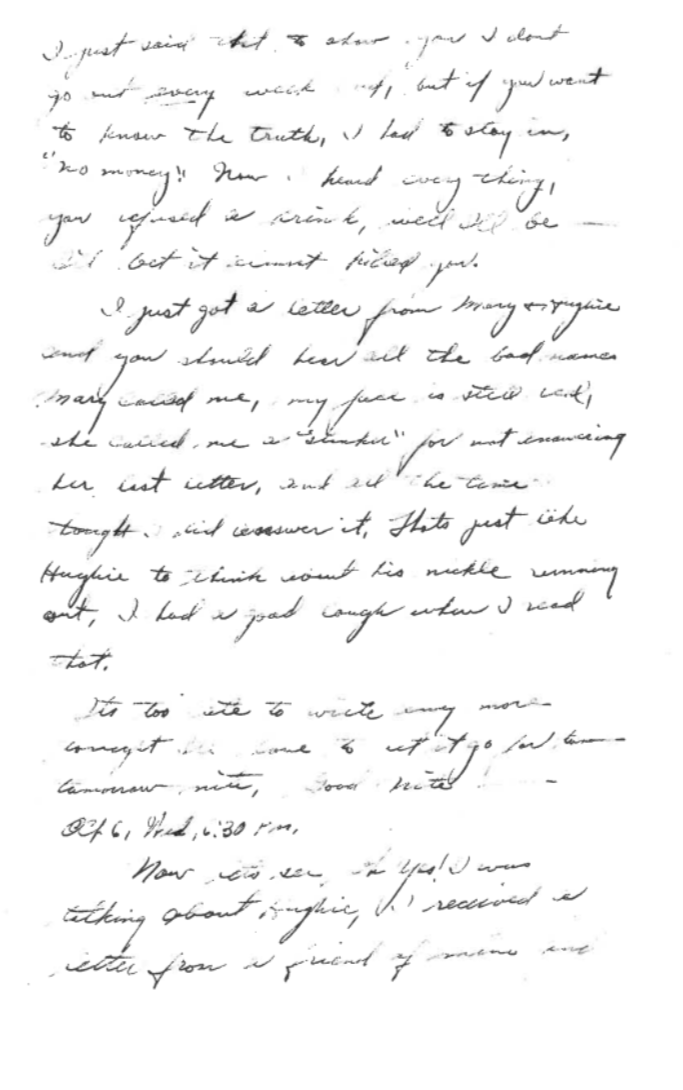 I just said that to show you I dont
go out every week end, but if you want
to know the truth, I had to stay in,
"no money". Now I heard every thing,
you refused a drink, well I'll be —
I'll bet it almost killed you.
I just got a letter from Mary & Hughie
and you should hear all the bad names
Mary called me, my face is still red,
she called me a "stinker" for not answering
her last letter, and all the time I
tought I did answer it. Thats just like
Hughie to think about his nickle running
out, I had a good laugh when I read
that.
Its too late to write any more
tonight have to let it go for tom—
tamorrow nite, Good Nite —
Oct 6, Wed, 6:30 P.M.
Now lets see, oh yes! I was
talking about Hughie, I received a
letter from a friend of mine and